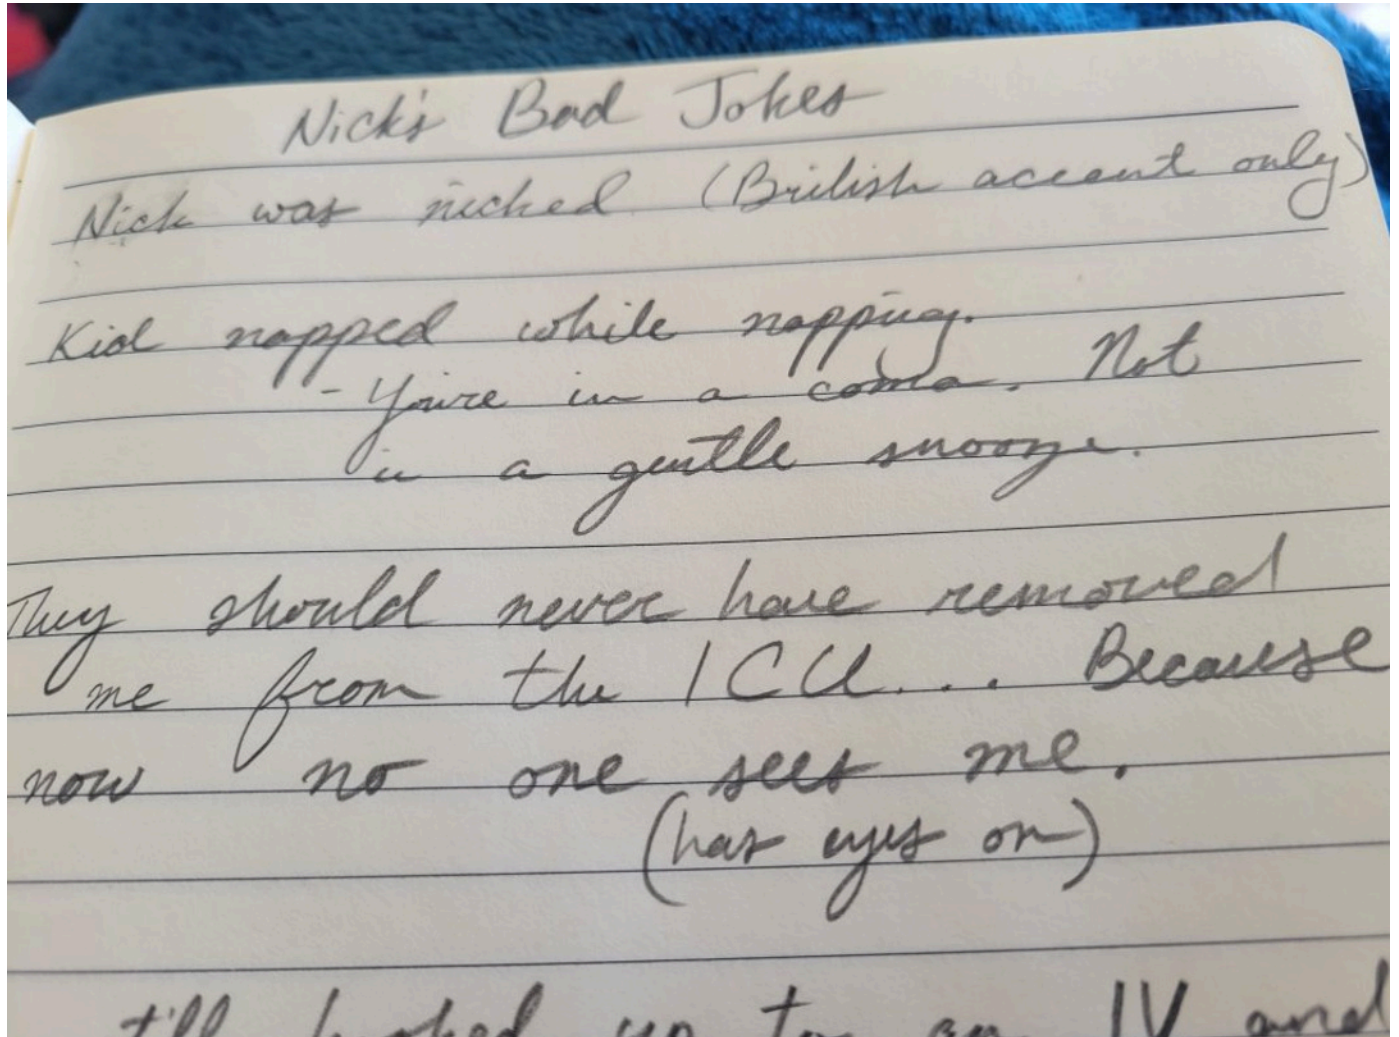 Nick's Bad Jokes
Nick was nicked (British accent only)
Kid napped while napping.
- You're in a coma. Not
in a gentle snooze.
They should never have removed
me from the ICU... Because
now no one sees me.
(has eyes on)
still hooked up to an IV and